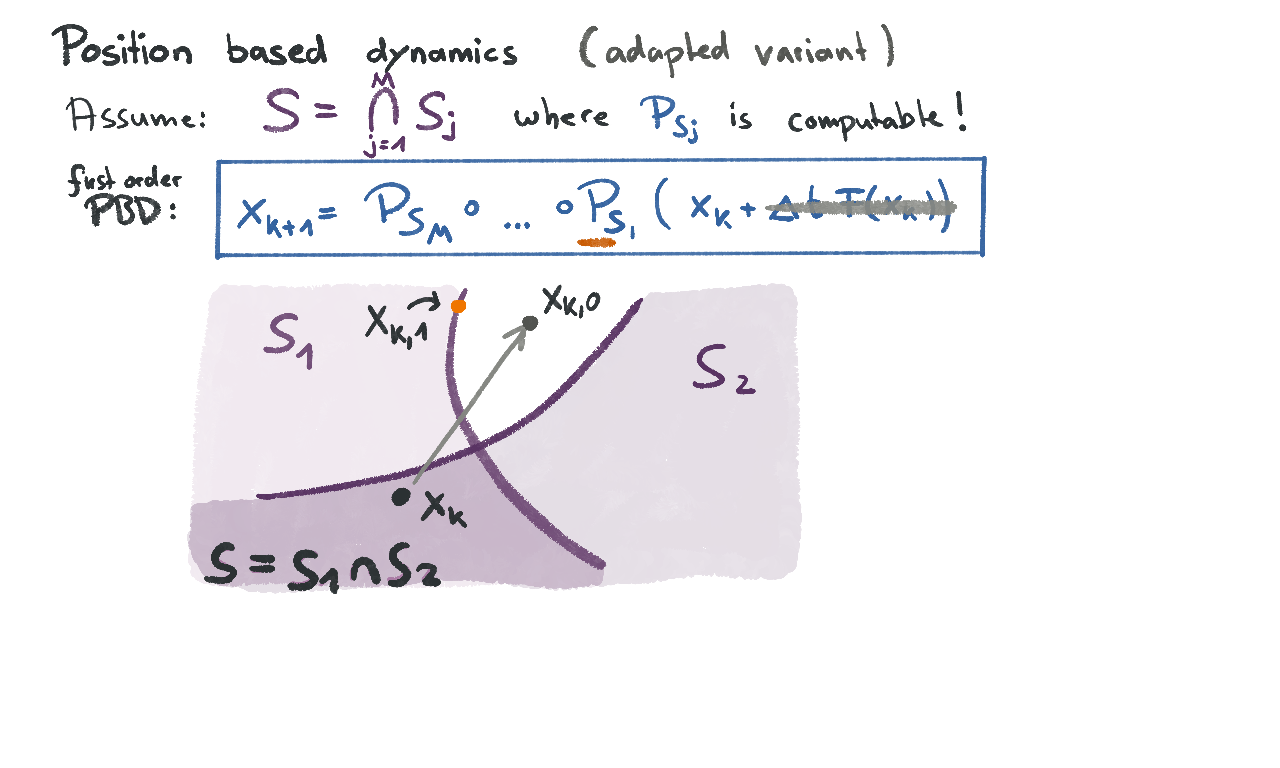 Position based dynamics (adapted variant)
Assume: S = ⋂_{j=1}^{M} S_j where P_{S_j} is computable!
first order
PBD: x_{k+1} = P_{S_M} ∘ ... ∘ P_{S_1} ( x_k + Δt f(x_k) )
x_{k,0}
x_{k,1}
S_1
S_2
x_k
S = S_1 ∩ S_2